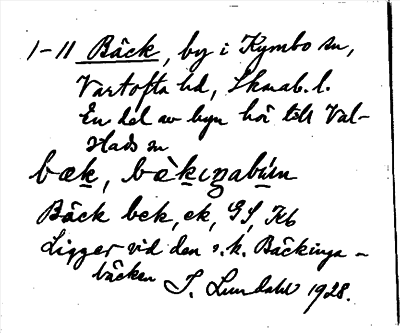 1-11 Bäck, by i Kymbo sn,
Vartofta hd, Skarab. l.
En del av byn hör till Val-
stads sn
bæk, bækiŋabún
Bäck bck, ek, GS, Kb
Ligger vid den s.k. Bäckinga-
bäcken J. Lundahl 1928.